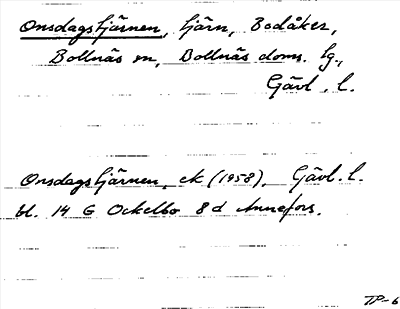 Onsdagstjärnen, tjärn, Bodåker,
Bollnäs sn, Bollnäs doms. hg.,
Gävl. l.
Onsdagstjärnen, ek (1958), Gävl. l.
bl. 14 G Ockelbo 8 d Annefors.
TP-6